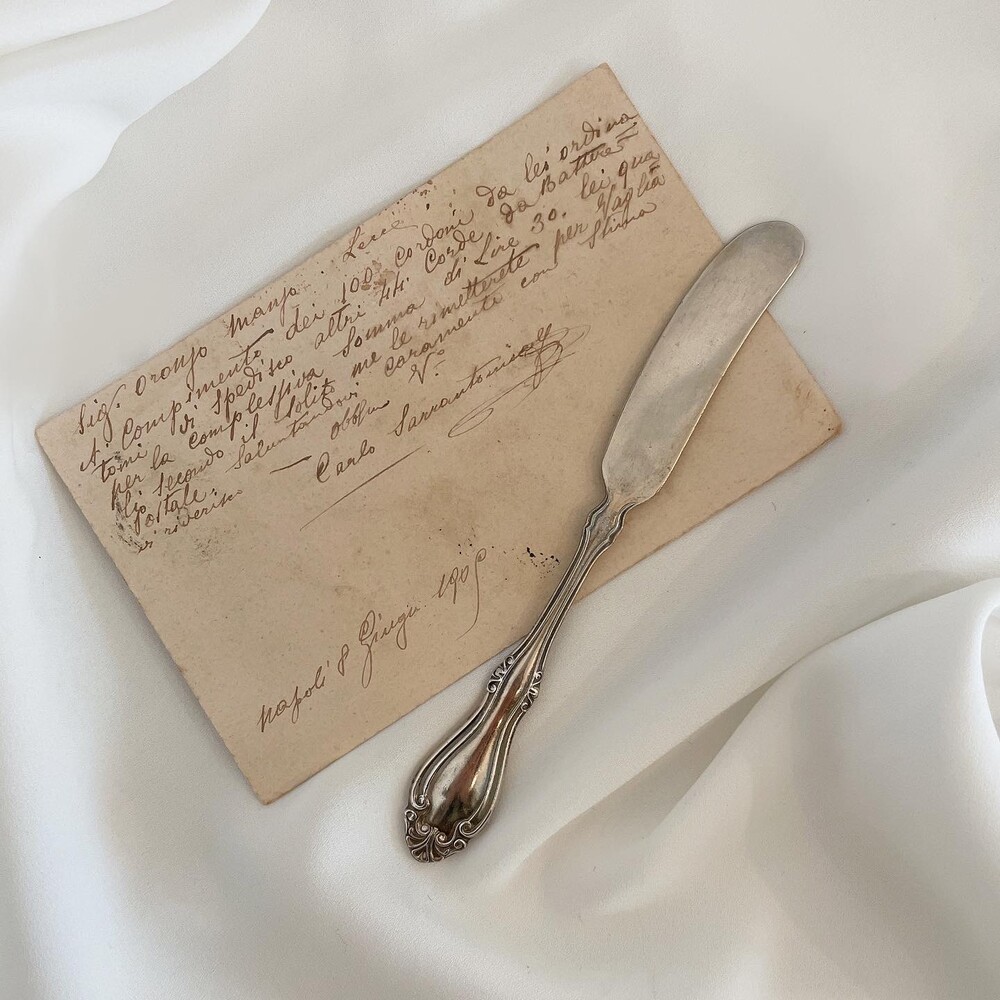 Sig. Oronzo Manzo Lecce
A compimento dei 100 cordoni da lei ordina
tomi di spedisco altri 44 Corde da Battere
per la complessiva Somma di Lire 30. lei qua
secondo il solito me le rimetterete per Vaglia
postale. Salutandovi caramente con stima
vi riverisco
Obblmo V°
Carlo
Napoli 8 Giugn 1905